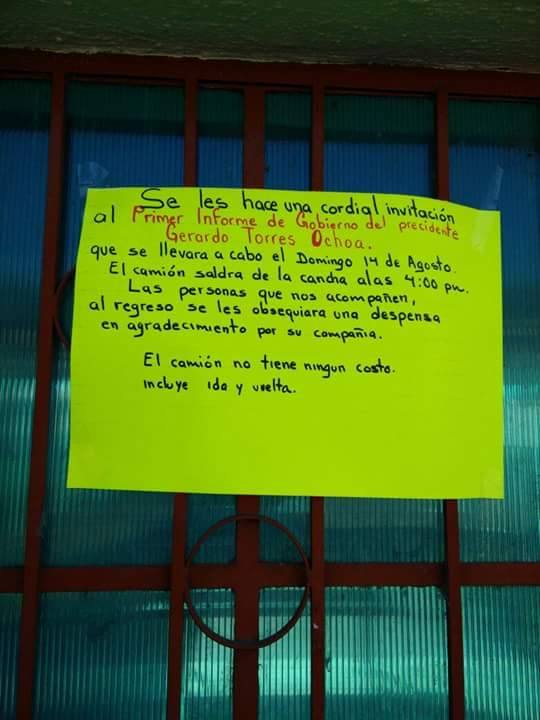 Se les hace una cordial invitación
al Primer Informe de Gobierno del precidente
Gerardo Torres Ochoa.
que se llevara a cabo el Domingo 14 de Agosto.
El camión saldra de la cancha alas 4:00 pm.
Las personas que nos acompañen,
al regreso se les obsequiara una despensa
en agradecimiento por su compañia.
El camión no tiene ningun costo.
incluye ida y vuelta.